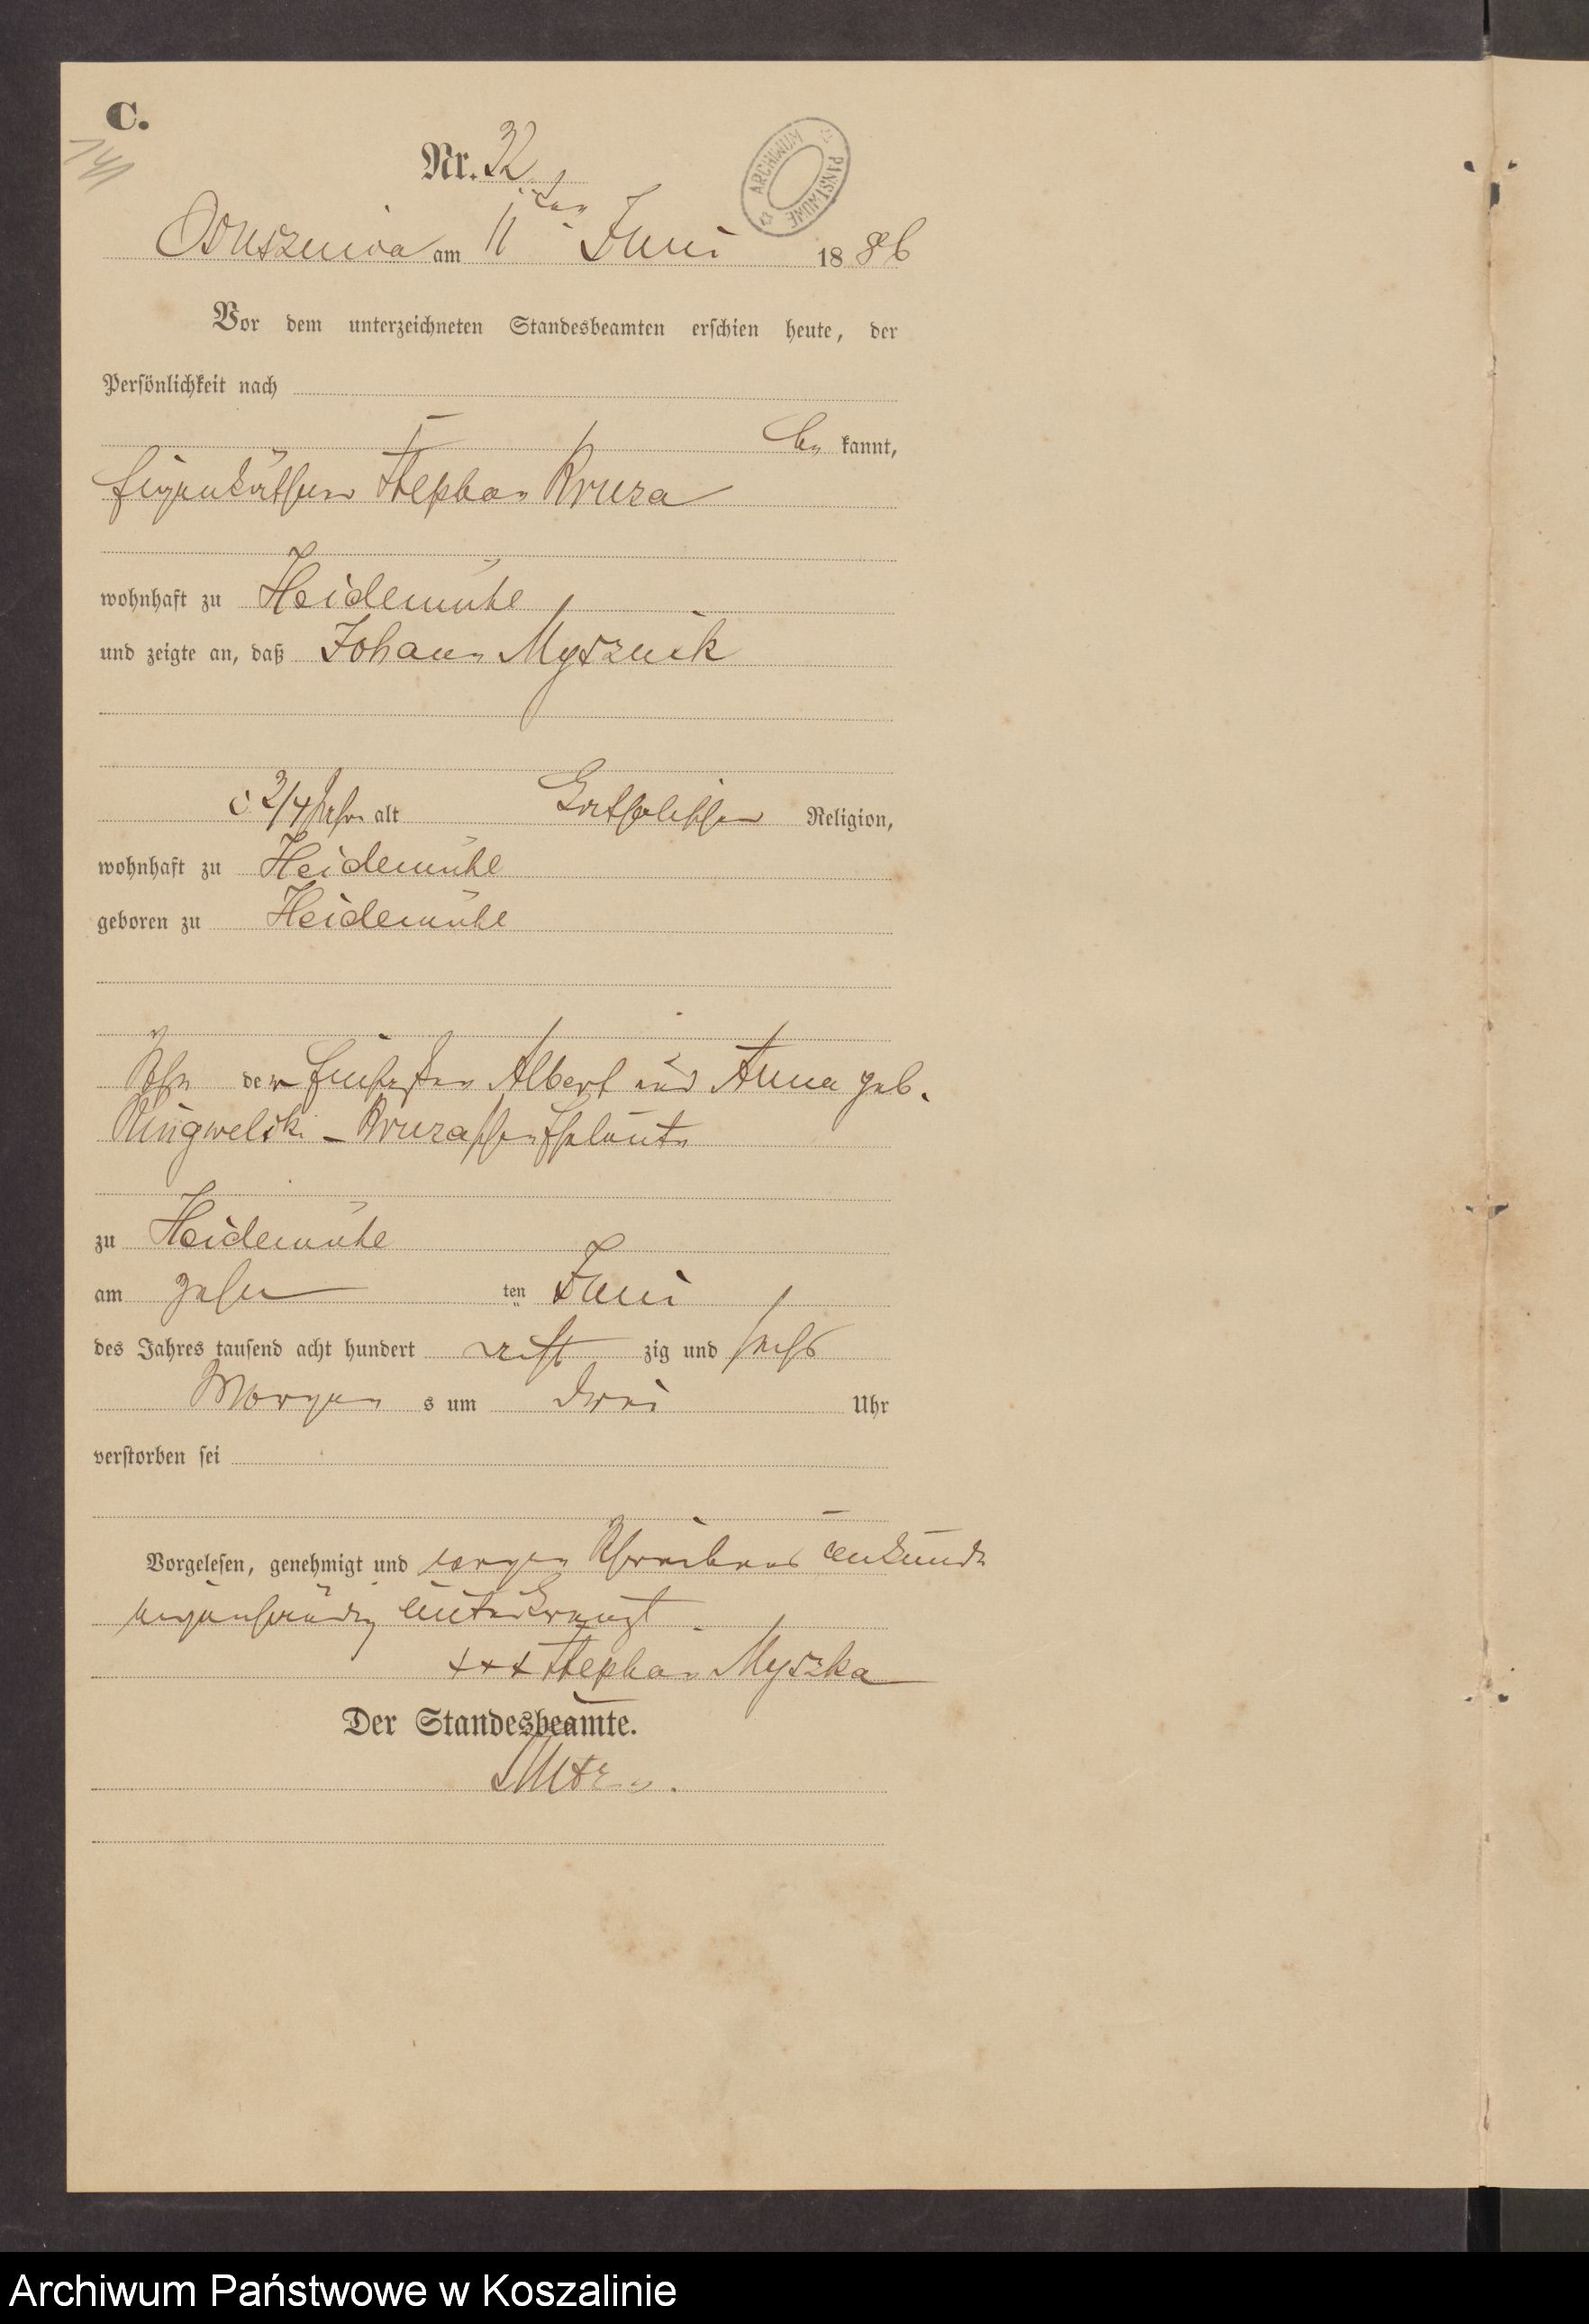 C.
Nr. 32
ARCHIWUM PAŃSTWOWE
Osuszniza am 11ten Juni 1886
Vor dem unterzeichneten Standesbeamten erschien heute, der
Persönlichkeit nach
be kannt,
Eigenkäthner Stephan Bruza
wohnhaft zu Heidemühl
und zeigte an, daß Johann Mysznik
3/4 Jahr alt Katholischer Religion,
wohnhaft zu Heidemühl
geboren zu Heidemühl
Sohn der Albert und Anna geb.
zu Heidemühl
am zehn ten Juni
des Jahres tausend acht hundert acht zig und sechs
Morgen s um drei Uhr
verstorben sei
Vorgelesen, genehmigt und wegen Schreibens unkunde
eigenhändig unterkreuzt
+++ Stephan Myszka
Der Standesbeamte.
Archiwum Państwowe w Koszalinie